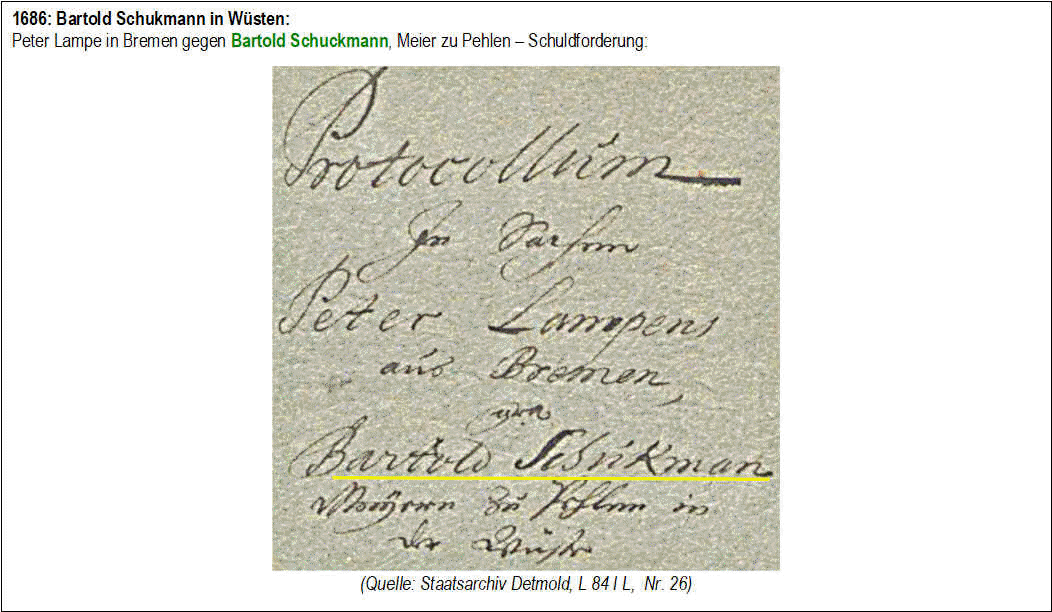 1686: Bartold Schukmann in Wüsten:
Peter Lampe in Bremen gegen Bartold Schuckmann, Meier zu Pehlen – Schuldforderung:
Protocollum
In Sachen
Peter Lampens
aus Bremen,
gra
Bartold Schukman
Meÿern zu Pehlen in
der Wüste
(Quelle: Staatsarchiv Detmold, L 84 I L, Nr. 26)